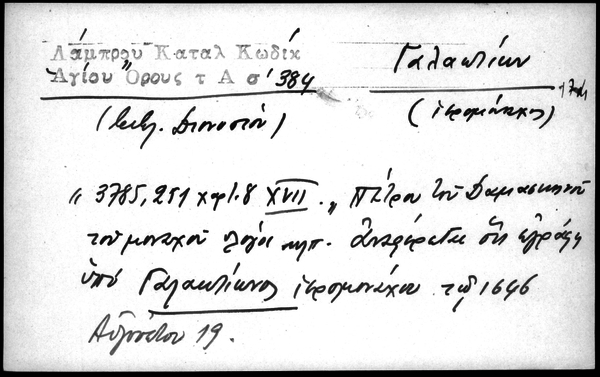 Λάμπρου Καταλ Κωδίκ
Ἁγίου Ὄρους τ Α σ' 384
Γαλακτίων
(ἱερομόναχος)
(βιβλ. Διονυσίου)
" 3785, 251 χαρτ. 8 XVII. „ Πέτρου τοῦ Δαμασκηνοῦ
τοῦ μοναχοῦ λόγοι κλπ. ἀναφέρεται ὅτι ἐγράφη
ὑπὸ Γαλακτίωνος ἱερομονάχου τῷ 1646
Αὐγούστου 19.